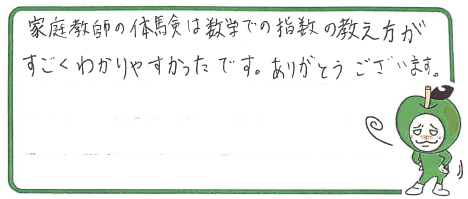 家庭教師の体験は数学での指数の教え方が
すごくわかりやすかったです。ありがとうございます。